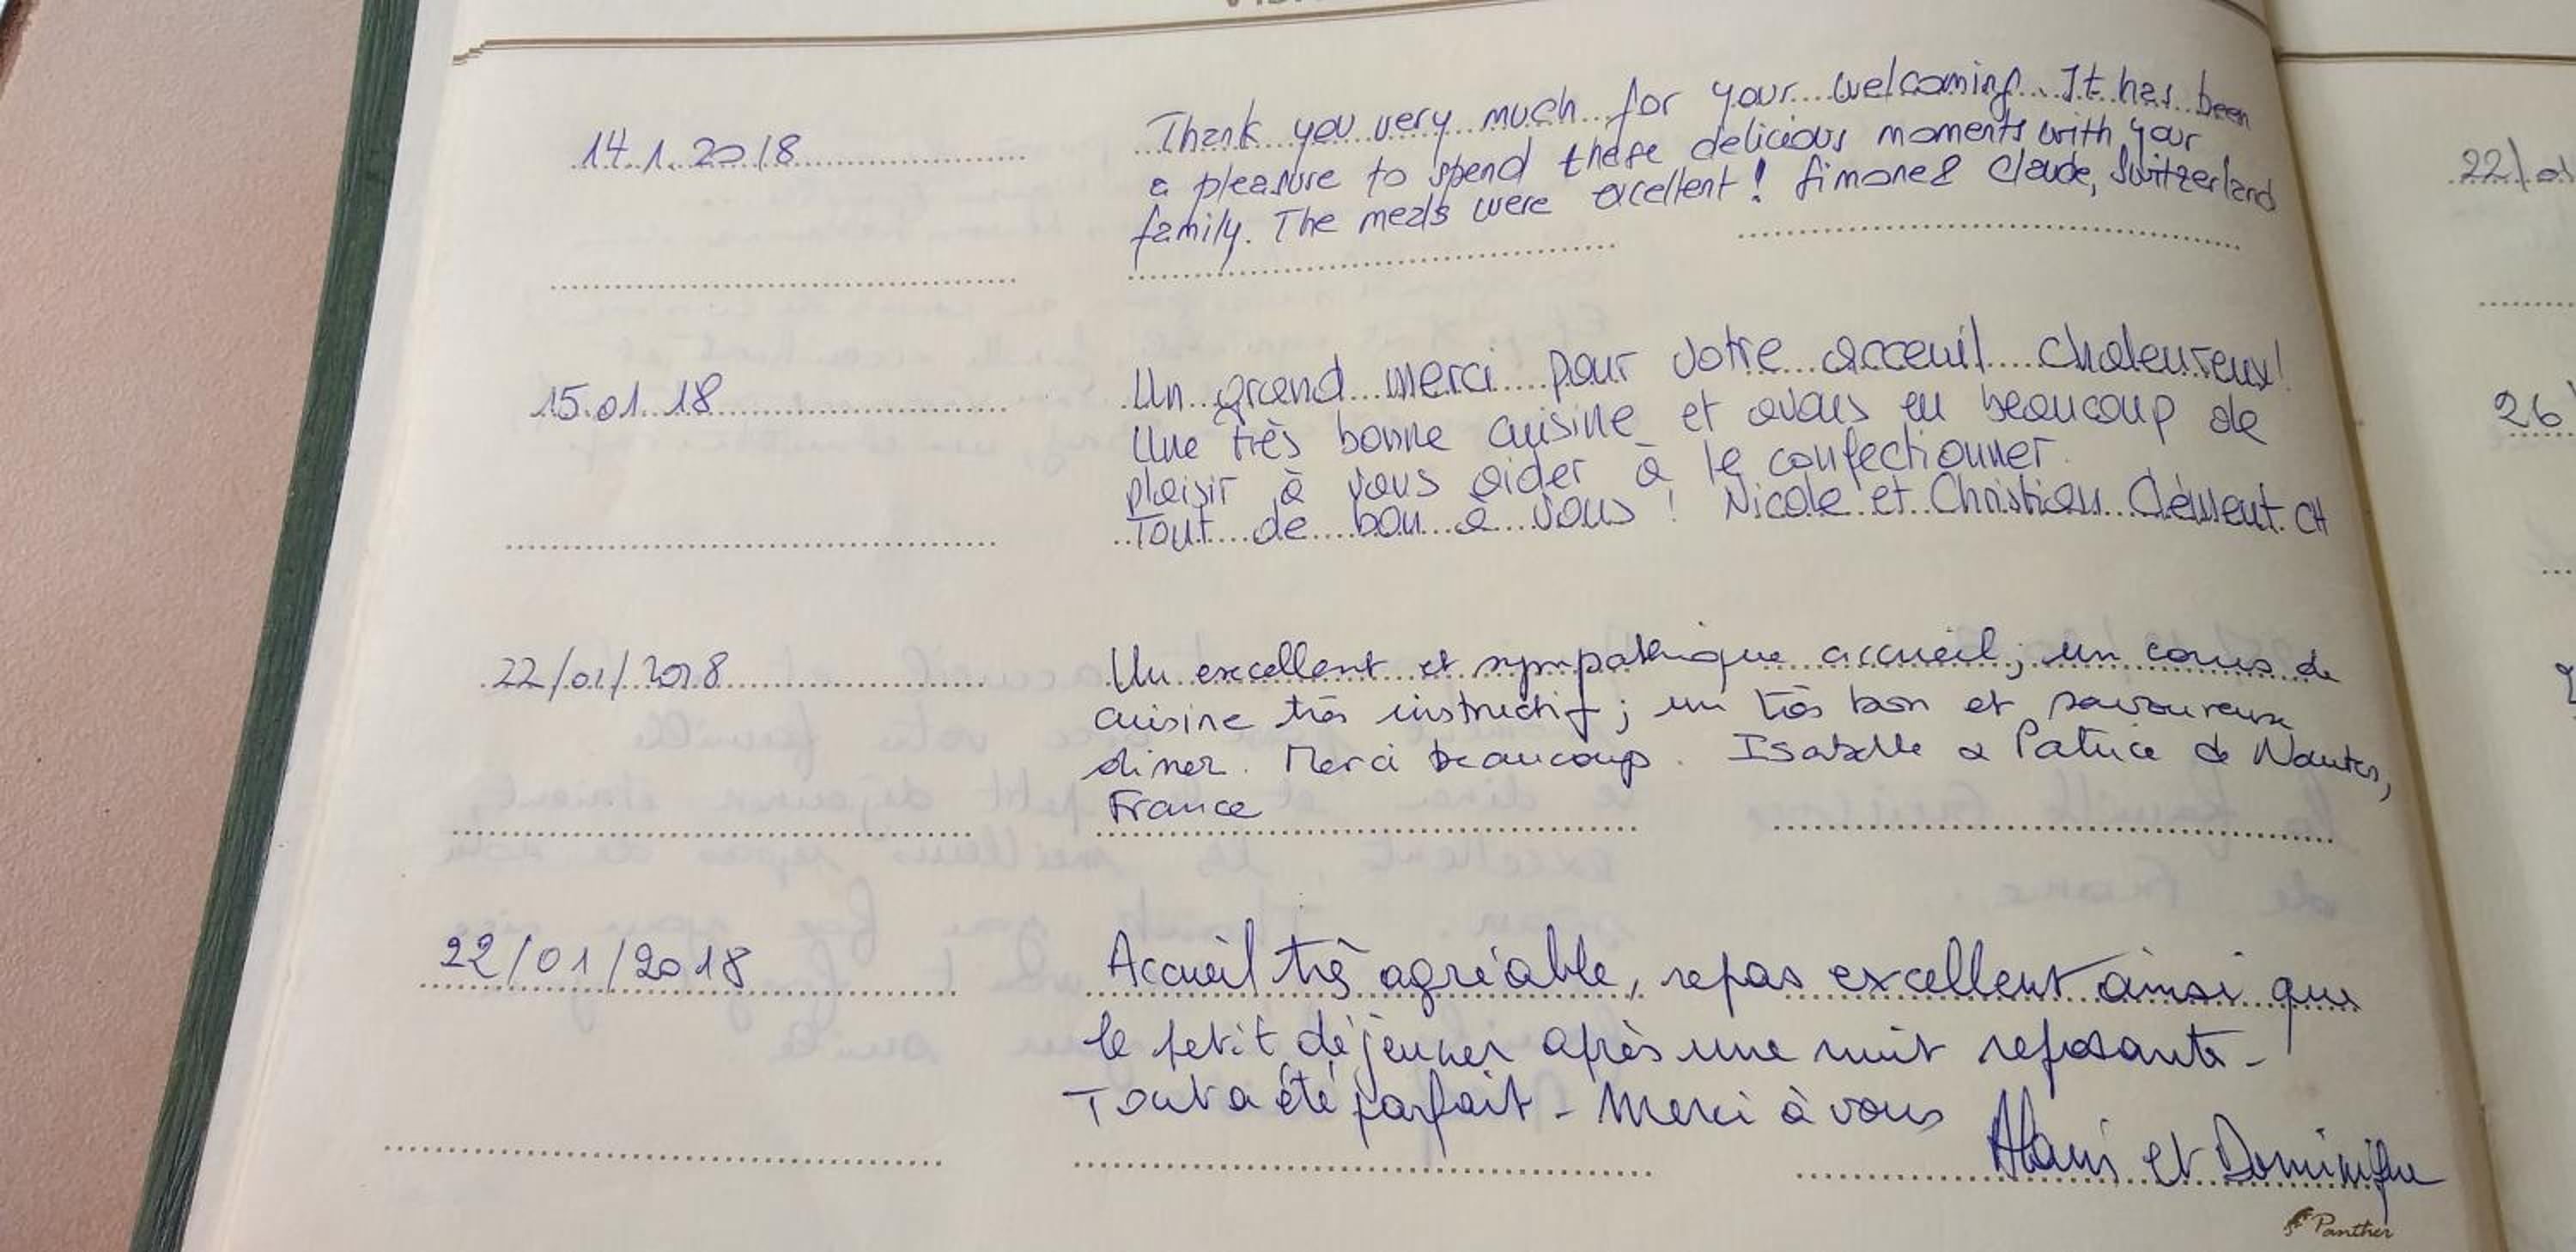 14.1.2018
Thank you very much for your welcoming. It has been
a pleasure to spend these delicious moments with your
family. The meals were excellent! Simone & Claude, Switzerland
15.01.18
Un grand merci pour votre acceuil chaleureux!
Une très bonne cuisine et avons eu beaucoup de
plaisir à vous aider à le confectionner.
Tout de bon à vous! Nicole et Christian Clément CH
22/01/2018
Un excellent et sympathique accueil; un cours de
cuisine très instructif; un très bon et savoureux
diner. Merci beaucoup. Isabelle & Patrice de Nantes,
France
22/01/2018
Accueil très agréable, repas excellent ainsi que
le petit déjeuner après une nuit reposante -
Tout a été parfait - Merci à vous
Alain et Dominique
Panther
22/01
26